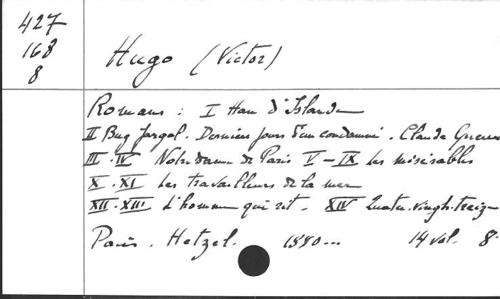 427
168
8
Hugo (Victor)
Romans : I Han d'Islande
II Bug Jargal. Dernier jour d'un condamné. Claude Gueux
III. IV Notre dame de Paris V-IX Les misérables
X. XI Les travailleurs de la mer
XII. XIII L'homme qui rit. XIV Quatre.vingt.treize
Paris. Hetzel. 1880... 14 vol. 8°